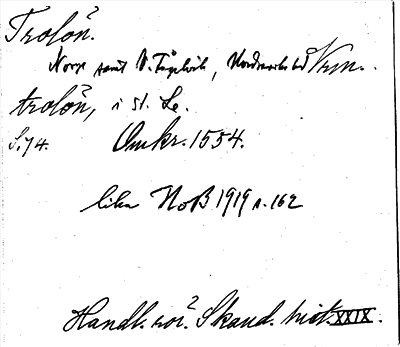 Trolön.
Norge samt V. Fågelvik, Nordmarks hd Vrm.
trolön, i st. Le.
S. 74. Omkr. 1554.
lika NoB 1919 s. 162
Handl. rör. Skand. hist. XXIX.